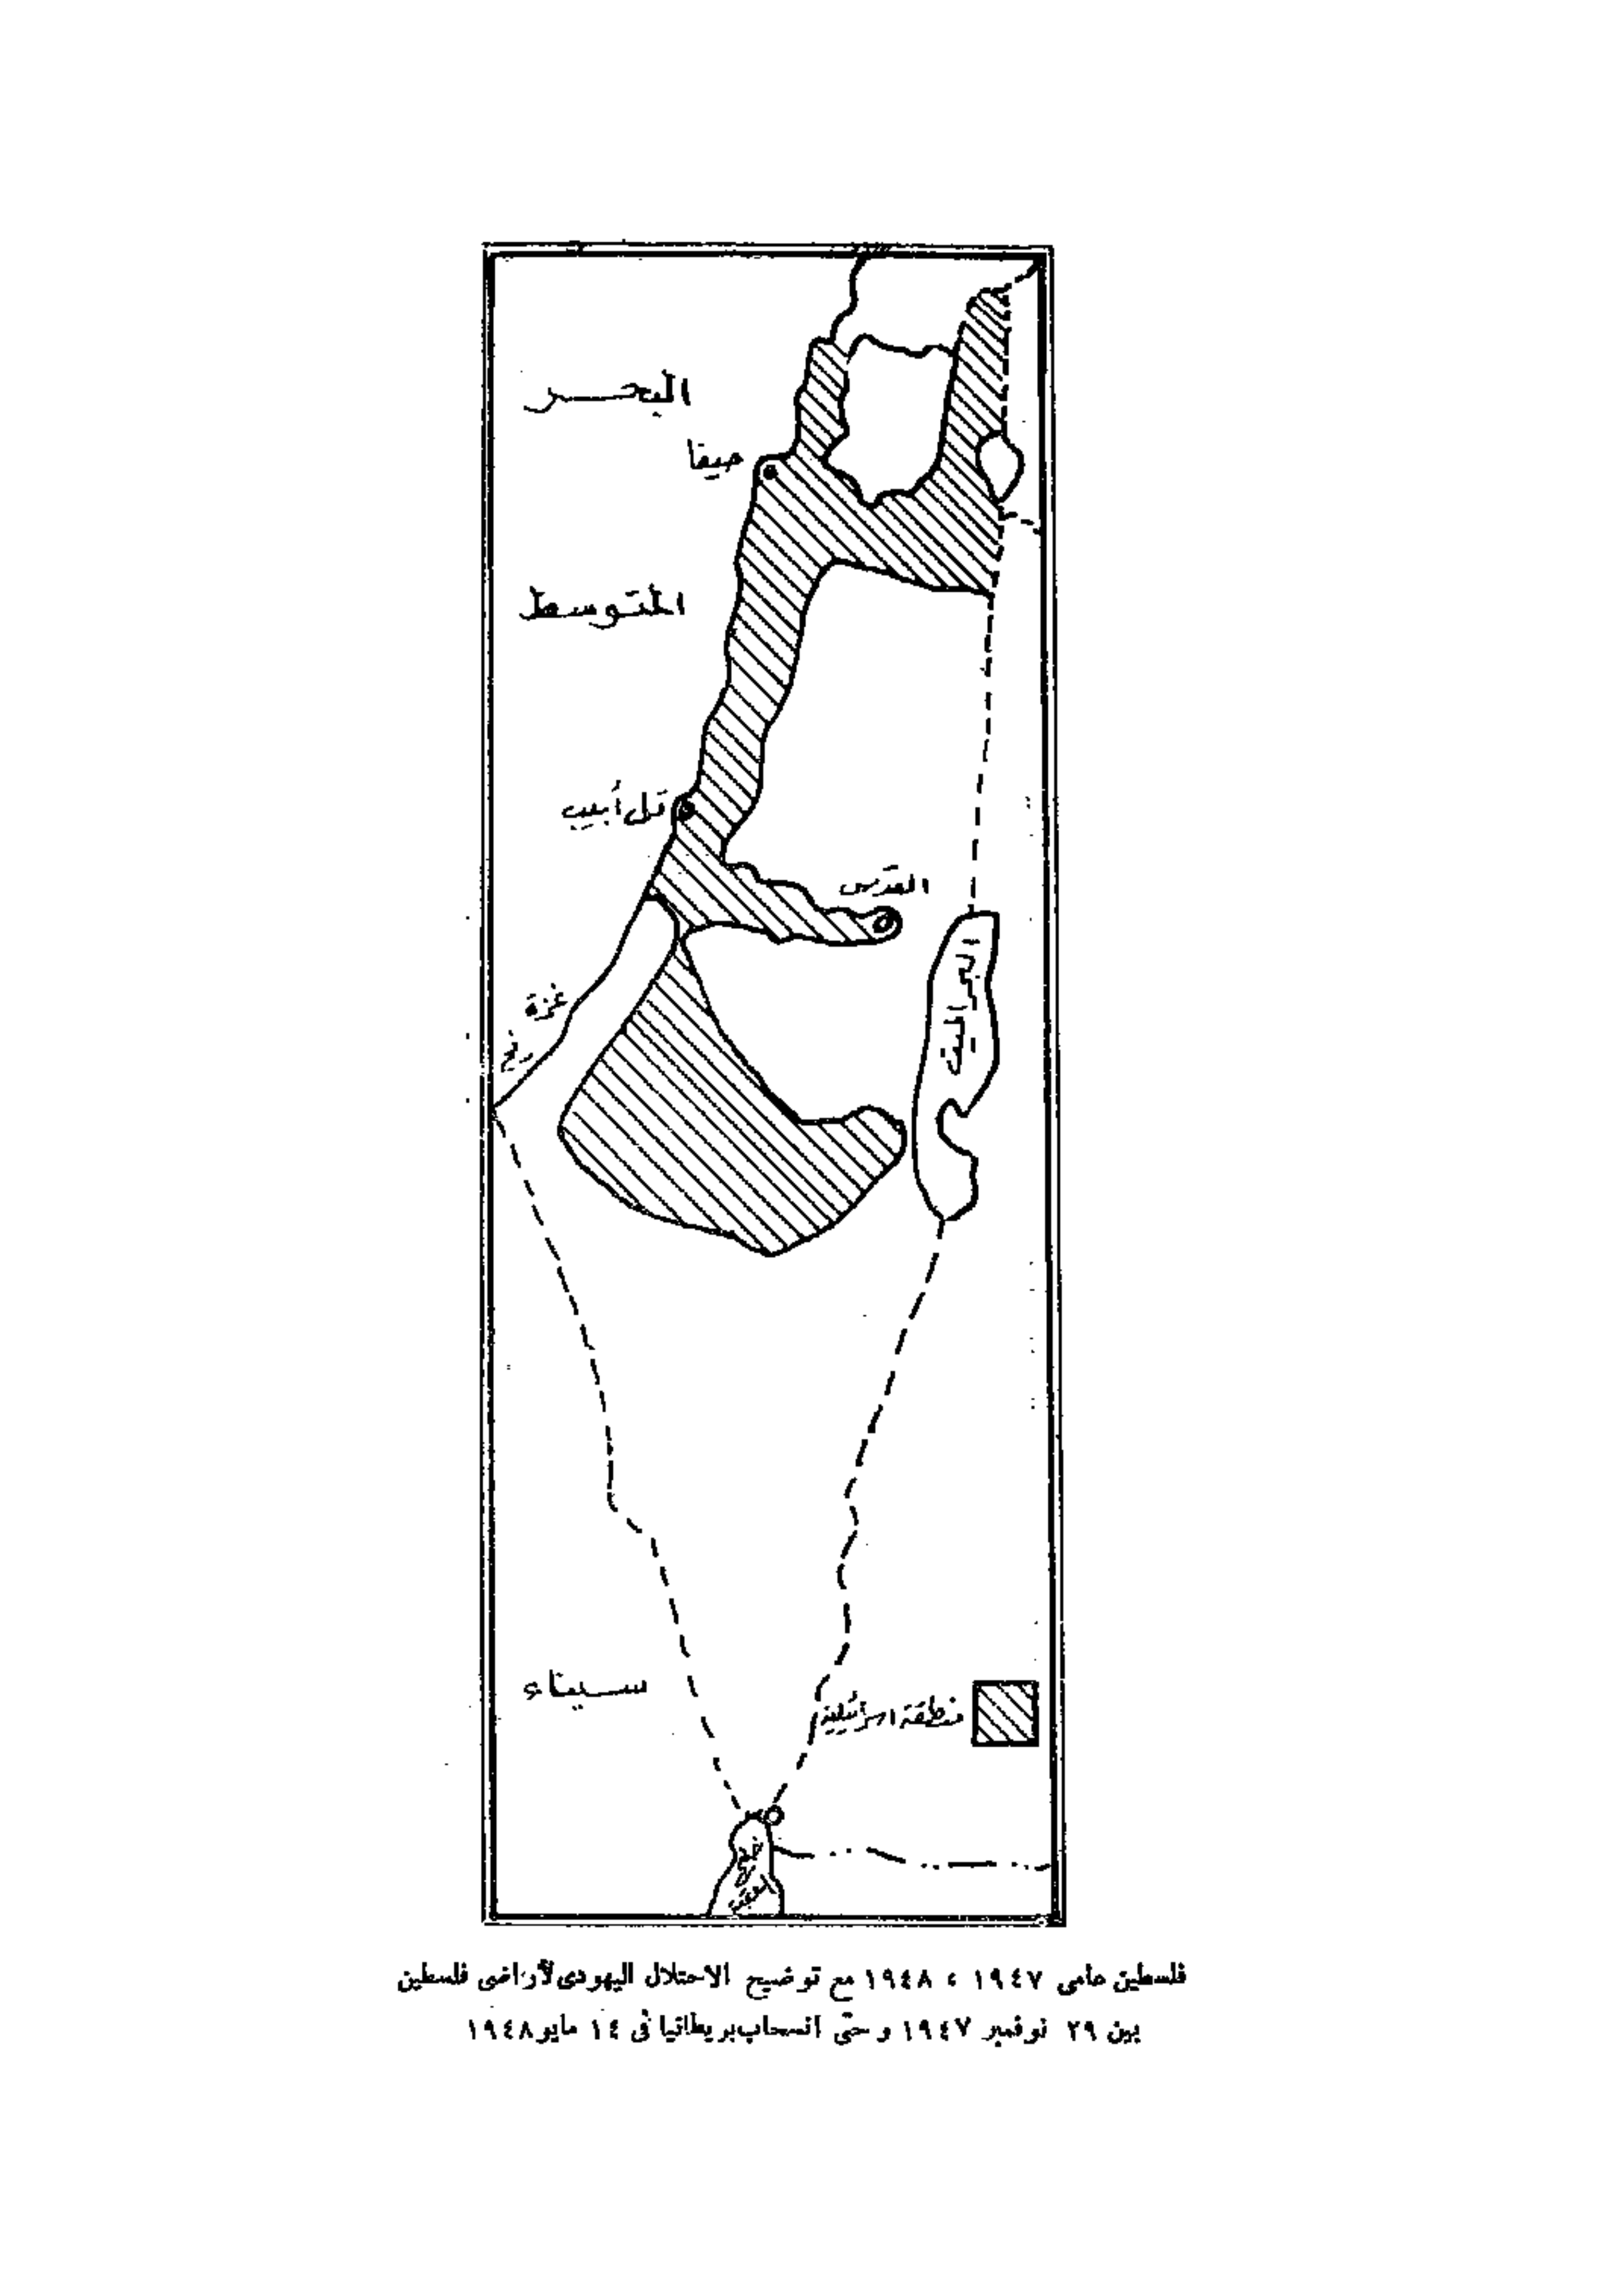 البحر
حيفا
المتوسط
تل أبيب
القدس
البحر الميت
غزة
رفح
سيناء
منطقة اسرائيلية
خليج العقبة
فلسطين عامى ١٩٤٧ ، ١٩٤٨ مع توضيح الاحتلال اليهودى لأراضى فلسطين
بين ٢٩ نوفمبر ١٩٤٧ وحتى انسحاب بريطانيا فى ١٤ مايو ١٩٤٨